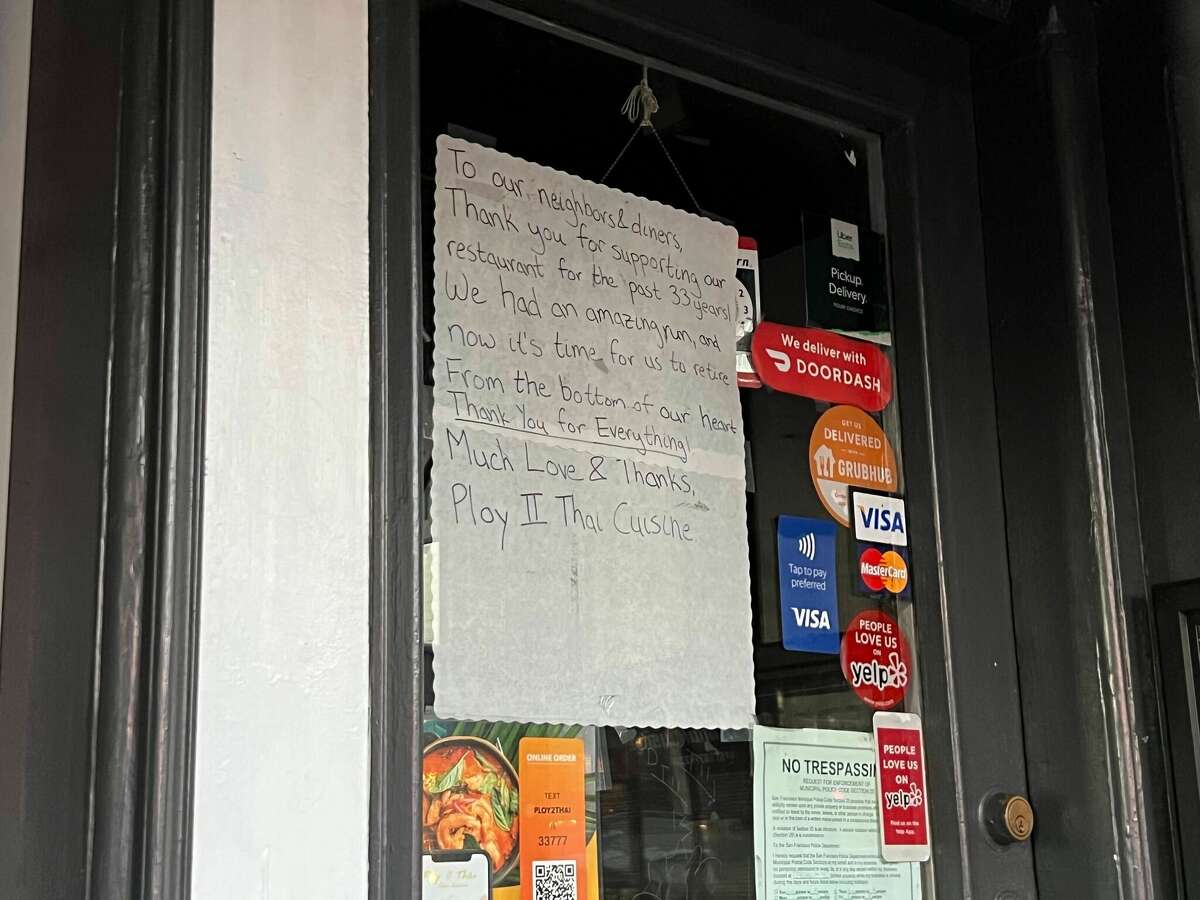 To our neighbors & diners,
Thank you for supporting our
restaurant for the past 33 years!
We had an amazing run, and
now it's time for us to retire
From the bottom of our heart
Thank You for Everything!
Much Love & Thanks,
Ploy II Thai Cuisine.
rn.
2
3
Uber
Eats
Pickup.
Delivery.
YOUR CHOICE
We deliver with
DOORDASH
GET US
DELIVERED
WITH
GRUBHUB
VISA
MasterCard
Tap to pay
preferred
VISA
PEOPLE
LOVE US
ON
yelp
PEOPLE
LOVE US
ON
yelp
Find us on the
Yelp App.
ONLINE ORDER
TEXT
PLOY2THAI
33777
NO TRESPASSI
REQUEST FOR ENFORCEMENT OF
MUNICIPAL POLICE CODE SECTION 25
To the San Francisco Police Department: